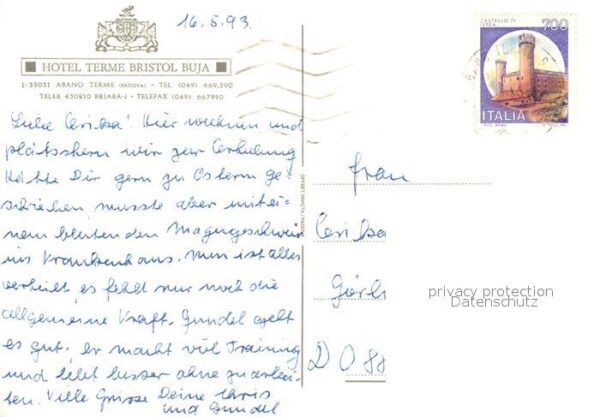 16.5.93.
HOTEL TERME BRISTOL BUJA
I-35031 ABANO TERME (PADOVA) - TEL. (049) 669.390
TELEX 430210 BRIABA-I - TELEFAX (049) 667910
CASTELLO DI
IVREA
700
ITALIA
Liebe Cerika! Hier wohnen und
plätschern wir zur Erholung
Hätte Dir gern zu Ostern ge-
schrieben musste aber mit ei-
nem blutenden Magengeschwür
ins Krankenhaus. Nun ist alles
verheilt es fehlt nur noch die
allgemeine Kraft. Gundel geht
es gut. Er macht viel Training
und lebt besser ohne zu arbei-
ten. Viele Grüsse Deine Chris
und Gundel
Frau
privacy protection
Datenschutz
D O 88